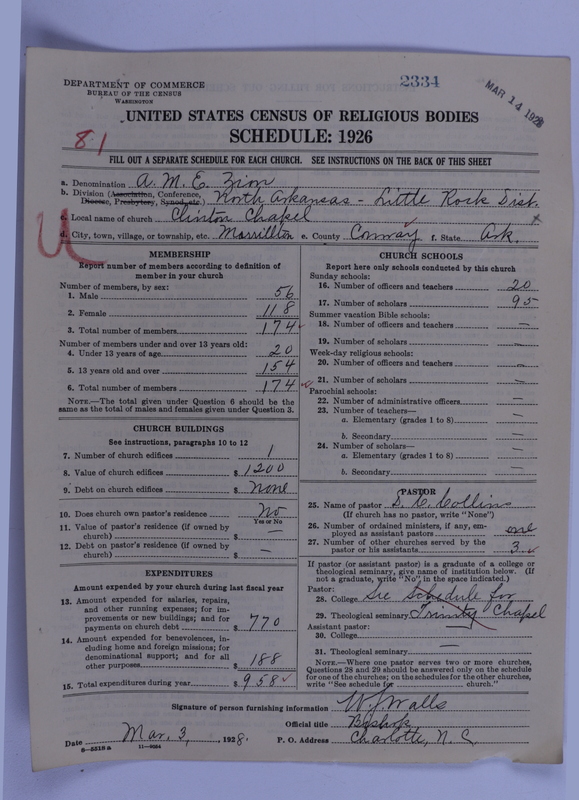 2334
MAR 14 1928
DEPARTMENT OF COMMERCE
BUREAU OF THE CENSUS
WASHINGTON
UNITED STATES CENSUS OF RELIGIOUS BODIES
SCHEDULE: 1926
81
FILL OUT A SEPARATE SCHEDULE FOR EACH CHURCH. SEE INSTRUCTIONS ON THE BACK OF THIS SHEET
a. Denomination A. M. E. Zion
b. Division (Association, Conference, Diocese, Presbytery, Synod, etc.) North Arkansas - Little Rock Dist.
c. Local name of church Clinton Chapel
d. City, town, village, or township, etc. Morrillton e. County Conway f. State Ark.
MEMBERSHIP
Report number of members according to definition of
member in your church
Number of members, by sex:
1. Male 56
2. Female 118
3. Total number of members 174
Number of members under and over 13 years old:
4. Under 13 years of age 20
5. 13 years old and over 154
6. Total number of members 174
NOTE.—The total given under Question 6 should be the
same as the total of males and females given under Question 3.
CHURCH BUILDINGS
See instructions, paragraphs 10 to 12
7. Number of church edifices 1
8. Value of church edifices $ 1200
9. Debt on church edifices $ none
10. Does church own pastor's residence? No
Yes or No
11. Value of pastor's residence (if owned by
church) $ —
12. Debt on pastor's residence (if owned by
church) $ —
EXPENDITURES
Amount expended by your church during last fiscal year
13. Amount expended for salaries, repairs,
and other running expenses; for im-
provements or new buildings; and for
payments on church debt $ 770
14. Amount expended for benevolences, in-
cluding home and foreign missions; for
denominational support; and for all
other purposes $ 188
15. Total expenditures during year $ 958
CHURCH SCHOOLS
Report here only schools conducted by this church
Sunday schools:
16. Number of officers and teachers 20
17. Number of scholars 95
Summer vacation Bible schools:
18. Number of officers and teachers —
19. Number of scholars —
Week-day religious schools:
20. Number of officers and teachers —
21. Number of scholars —
Parochial schools:
22. Number of administrative officers —
23. Number of teachers—
a. Elementary (grades 1 to 8) —
b. Secondary —
24. Number of scholars—
a. Elementary (grades 1 to 8) —
b. Secondary —
PASTOR
25. Name of pastor Collins
(If church has no pastor, write "None")
26. Number of ordained ministers, if any, em-
ployed as assistant pastors one
27. Number of other churches served by the
pastor or his assistants 3
If pastor (or assistant pastor) is a graduate of a college or
theological seminary, give name of institution below. (If
not a graduate, write "No", in the space indicated.)
Pastor:
28. College See Schedule for
29. Theological seminary Trinity Chapel
Assistant pastor:
30. College
31. Theological seminary —
NOTE.—Where one pastor serves two or more churches,
Questions 28 and 29 should be answered only on the schedule
for one of the churches; on the schedules for the other churches,
write "See schedule for church."
Signature of person furnishing information W. J. Walls
Official title Bishop
Date Mar. 3, 1928. P. O. Address Charlotte, N. C.
8—5518a 11—9054